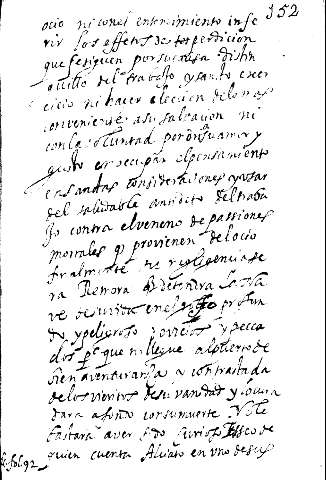 352
ocio ni con el entendimiento infe
rir los effetos de su perdicion
que se siguen por su causa distin
del trabajo y santo exer
cicio ni hacer eleccion de lo mas
conveniente a su salvacion ni
con la voluntad por on su amor y
gusto en ocupar el pensamiento
en santas consideraciones y usar
del saludable antidoto del traba
jo contra el veneno de passiones
morrales q provienen del ocio
finalmente negligencia se
ra Remora detendra la Na
ve de su vida en el golfo profun
do y peligroso de vicios y pecca
dos pa que no llegue al puerto de
bien aventuransa y contrastada
de los vientos de su vanidad y locura
dara a fondo con su muerte y le
bastara aver sido curioso de
quien cuenta Alciato en uno de sus
fol. 92